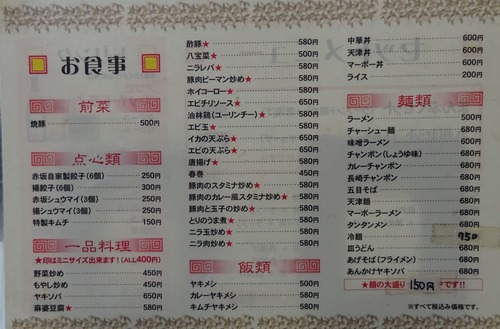 お食事
前菜
焼豚 500円
点心類
赤坂自家製餃子(6個) 250円
揚餃子(6個) 300円
赤坂シュウマイ(3個) 250円
揚シュウマイ(3個) 250円
特製キムチ 150円
一品料理
★印はミニサイズ出来ます!(ALL400円)
野菜炒め 450円
もやし炒め 450円
ヤキソバ 650円
麻婆豆腐★ 580円
酢豚★ 580円
八宝菜★ 580円
ニラレバ★ 580円
豚肉ピーマン炒め★ 580円
ホイコーロー★ 580円
エビチリソース★ 650円
油林鶏(ユーリンチー)★ 580円
エビ玉★ 580円
イカの天ぷら★ 580円
エビの天ぷら★ 650円
唐揚げ★ 580円
春巻 450円
豚肉のスタミナ炒め★ 580円
豚肉のカレー風スタミナ炒め★ 580円
豚肉と玉子の炒め★ 580円
とりのうま煮★ 580円
ニラ玉炒め★ 580円
ニラ肉炒め★ 580円
飯類
ヤキメシ 500円
カレーヤキメシ 580円
キムチヤキメシ 580円
中華丼 600円
天津丼 600円
マーボー丼 600円
ライス 200円
麺類
ラーメン 500円
チャーシュー麺 680円
味噌ラーメン 600円
チャンポン(しょうゆ味) 680円
カレーチャンポン 680円
長崎チャンポン 680円
五目そば 680円
天津麺 680円
マーボーラーメン 680円
タンタンメン 680円
冷麺 750
皿うどん 680円
あげそば(フライメン) 680円
あんかけヤキソバ 680円
★麺の大盛り 150円 です!!
※すべて税込み価格です。